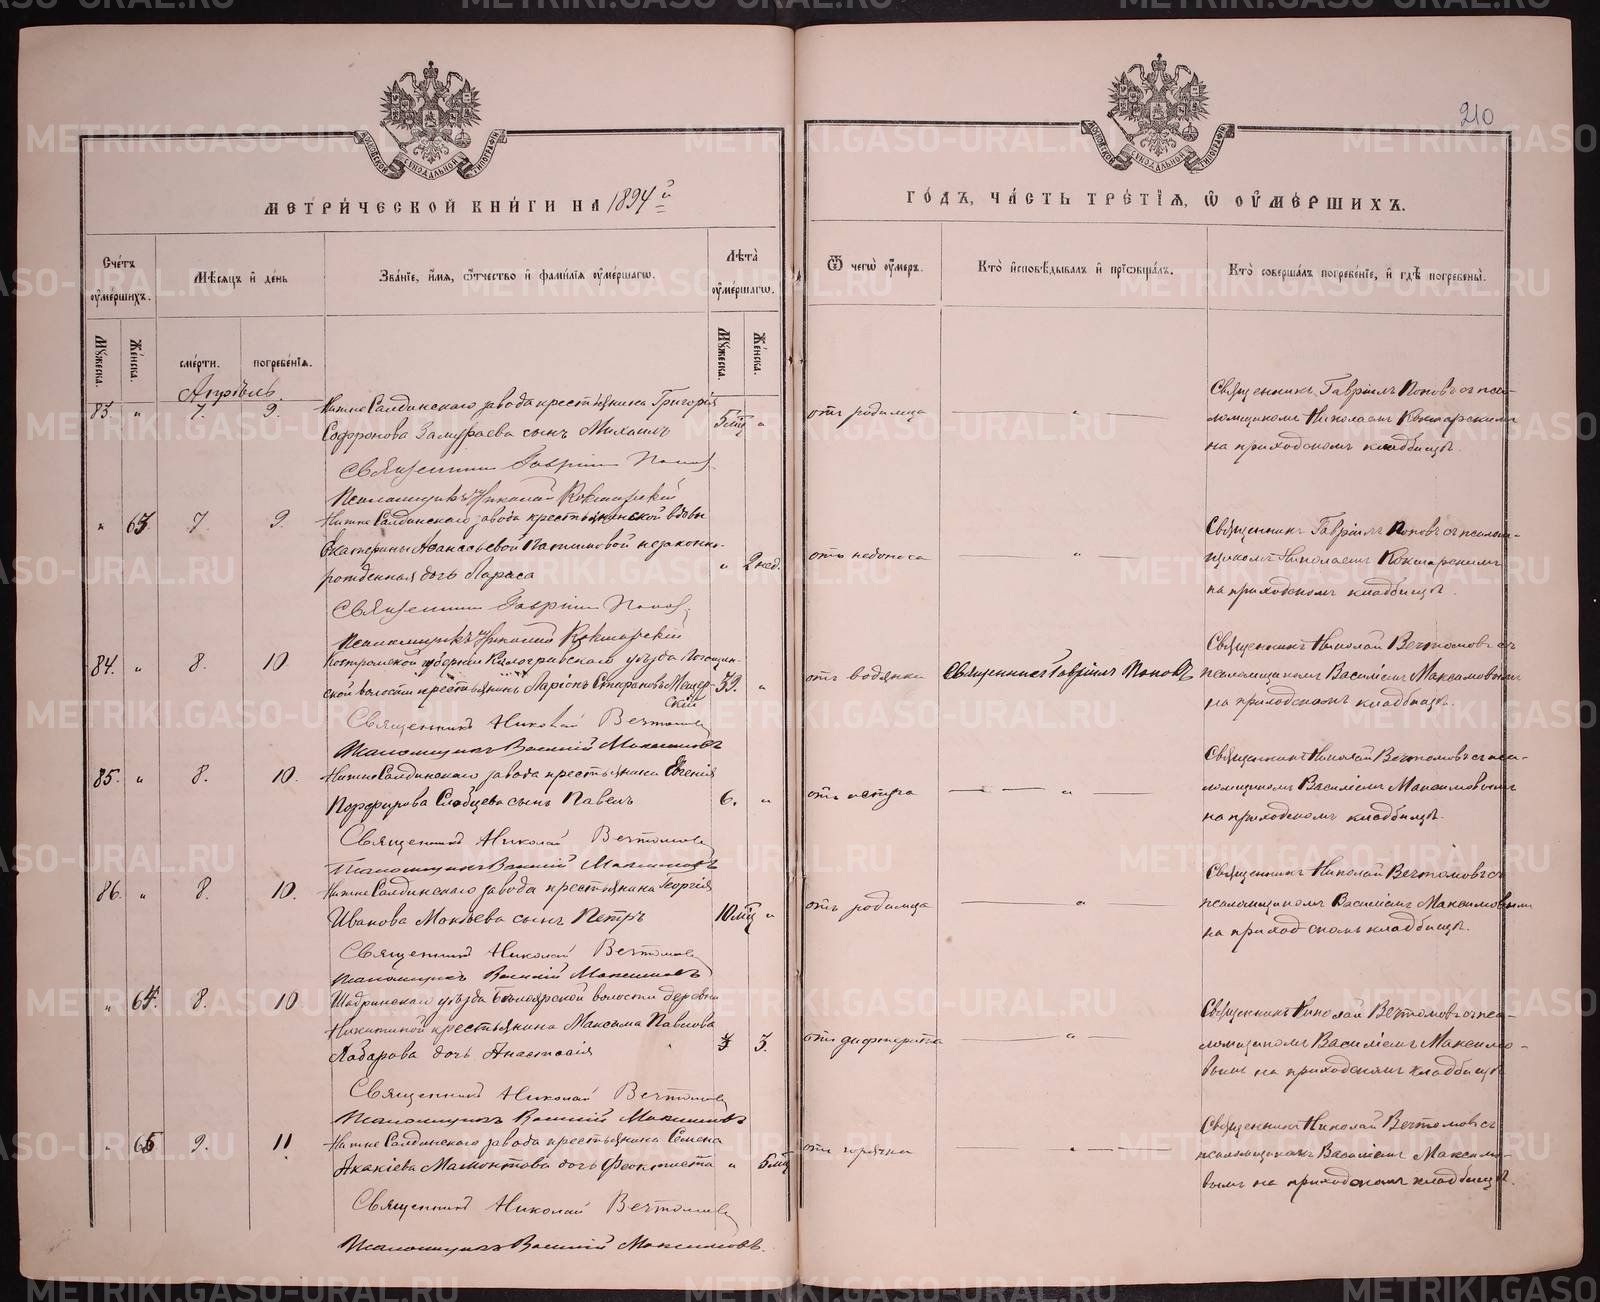 210
МЕТРИЧЕСКОЙ КНИГИ НА 1894й
ГОДЪ, ЧАСТЬ ТРЕТІЯ, Ѿ ОУМЕРШИХЪ.
Счетъ оумершихъ.
Мѣсяцъ и день
Званіе, имя, отчество и фамилія оумершагѡ.
Лѣта оумершагѡ.
Ѿ чегѡ оумеръ.
Кто исповѣдывалъ и пріобщалъ.
Кто совершалъ погребеніе, и гдѣ погребены.
Мужеска.
Женска.
смерти.
погребенія.
Мужеска.
Женска.
Апрѣль.
83. " 7. 9. Нижне Салдинскаго завода крестьянина Григорія
Софронова Замураева сынъ Михаилъ 5 мц "
отъ родимца — " —
Священникъ Гавріилъ Поповъ съ пса-
ломщикомъ Николаемъ Кокшарскимъ
на приходскомъ кладбищѣ.
Священникъ Гавріилъ Поповъ
Псаломщикъ Николай Кокшарскій
" 63. 7. 9. Нижне Салдинскаго завода крестьянской вдовы
Екатерины Аѳанасьевой незаконно-
рожденная дочь Лариса " 2 нед.
отъ недоноса — " —
Священникъ Гавріилъ Поповъ съ псалом-
щикомъ Николаемъ Кокшарскимъ
на приходскомъ кладбищѣ.
Священникъ Гавріилъ Поповъ
Псаломщикъ Николай Кокшарскій
84. " 8. 10. Костромской губерніи Кологривскаго уѣзда
ской волости крестьянинъ Ларіонъ Стефановъ Мещер-
скій 39. "
отъ водянки Священникъ Гавріилъ Поповъ
Священникъ Николай Вечтомовъ съ
псаломщикомъ Василіемъ Максимовымъ
на приходскомъ кладбищѣ.
Священникъ Николай Вечтомовъ
Псаломщикъ Василій Максимовъ
85. " 8. 10. Нижне Салдинскаго завода крестьянина Евгенія
Порфирова Слобцева сынъ Павелъ 6. "
отъ — " —
Священникъ Николай Вечтомовъ съ пса-
ломщикомъ Василіемъ Максимовымъ
на приходскомъ кладбищѣ.
Священникъ Николай Вечтомовъ
Псаломщикъ Василій Максимовъ
86. " 8. 10. Нижне Салдинскаго завода крестьянина Георгія
Иванова Мокѣева сынъ Петръ 10 мц "
отъ родимца — " —
Священникъ Николай Вечтомовъ съ
псаломщикомъ Василіемъ Максимовымъ
на приходскомъ кладбищѣ.
Священникъ Николай Вечтомовъ
Псаломщикъ Василій Максимовъ
" 64. 8. 10 Шадринскаго уѣзда волости деревни
Никитиной крестьянина Максима Павлова
Лабарова дочь Анастасія 3.
отъ дифтерита — " —
Священникъ Николай Вечтомовъ съ пса-
ломщикомъ Василіемъ Максимо-
вымъ на приходскомъ кладбищѣ
Священникъ Николай Вечтомовъ
Псаломщикъ Василій Максимовъ
" 65 9. 11. Нижне Салдинскаго завода крестьянина Семена
Акакіева Мамонтова дочь Феоктиста " 5 мц
отъ горячки — " —
Священникъ Николай Вечтомовъ съ
псаломщикомъ Василіемъ Максимо-
вымъ на приходскомъ кладбищѣ.
Священникъ Николай Вечтомовъ
Псаломщикъ Василій Максимовъ.
METRIKI.GASO-URAL.RU